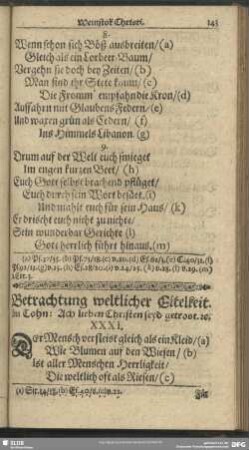 Weinstok Christi. 143
8.
Wenn schon sich Böß ausbreiten/(a)
Gleich als ein Lorbeer Baum/
Vergehn sie doch bey Zeiten/(b)
Man find ihr Stete kaum/(c)
Die Fromm' empfahn die Kron/(d)
Auffahrn mit Glaubens Federn/(e)
Und waren grün als Cedern/(f)
Ins Himmels Libanon. (g)
9.
Drum auf der Welt euch schmieget
Im engen kurzen Beet/(h)
Euch Gott selbst brachand pflüget/
Euch durch sein Wort besäet.(i)
Und mahlt euch für sein Haus/(k)
Er drischt euch nicht zu nichte/
Sein wunderbar Gerichte (l)
Gott herrlich führt hinaus.(m)
Betrachtung weltlicher Eitelkeit.
in Tohn: Ach lieben Christen seyd getrost. ic.
XXXI.
Der Mensch verfleist gleich als ein Kleid/(a)
Wie Blumen auf den Wiesen/(b)
Ist aller Menschen Herrligkeit/
Die weltlich oft als Riesen/(c)